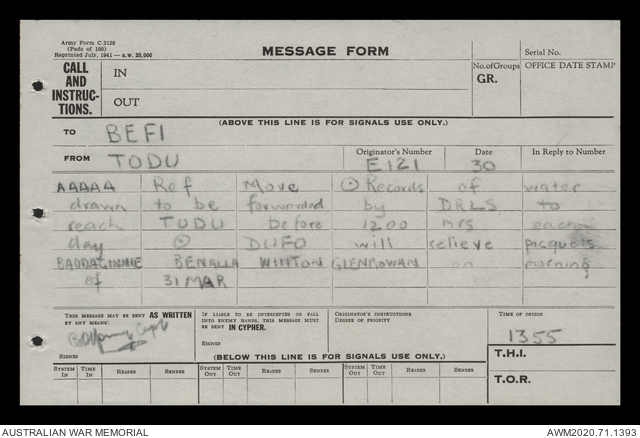 Army Form C.2128
(Pads of 100)
Reprinted July, 1941
MESSAGE FORM
Serial No.
CALL AND INSTRUC-TIONS.
IN
OUT
No. of Groups
GR.
OFFICE DATE STAMP
(ABOVE THIS LINE IS FOR SIGNALS USE ONLY.)
TO BEFI
FROM TODU
Originator's Number E121
Date 30
In Reply to Number
AAAAA Ref Move ⊙ Records of water
drawn to be forwarded by DRLS to
reach TODU before 1200 hrs each
day ⊙ DUFO will relieve picquets
BADDAGINNIE BENALLA WINTON GLENROWAN on morning
of 31 MAR
THIS MESSAGE MAY BE SENT AS WRITTEN
BY ANY MEANS:
SIGNED
IF LIABLE TO BE INTERCEPTED OR FALL
INTO ENEMY HANDS, THIS MESSAGE MUST
BE SENT IN CYPHER.
SIGNED
ORIGINATOR'S INSTRUCTIONS
DEGREE OF PRIORITY
TIME OF ORIGIN
1355
T.H.I.
T.O.R.
(BELOW THIS LINE IS FOR SIGNALS USE ONLY.)
SYSTEM IN TIME IN READER SENDER SYSTEM OUT TIME OUT READER SENDER SYSTEM OUT TIME OUT READER SENDER
AUSTRALIAN WAR MEMORIAL
AWM2020.71.1393